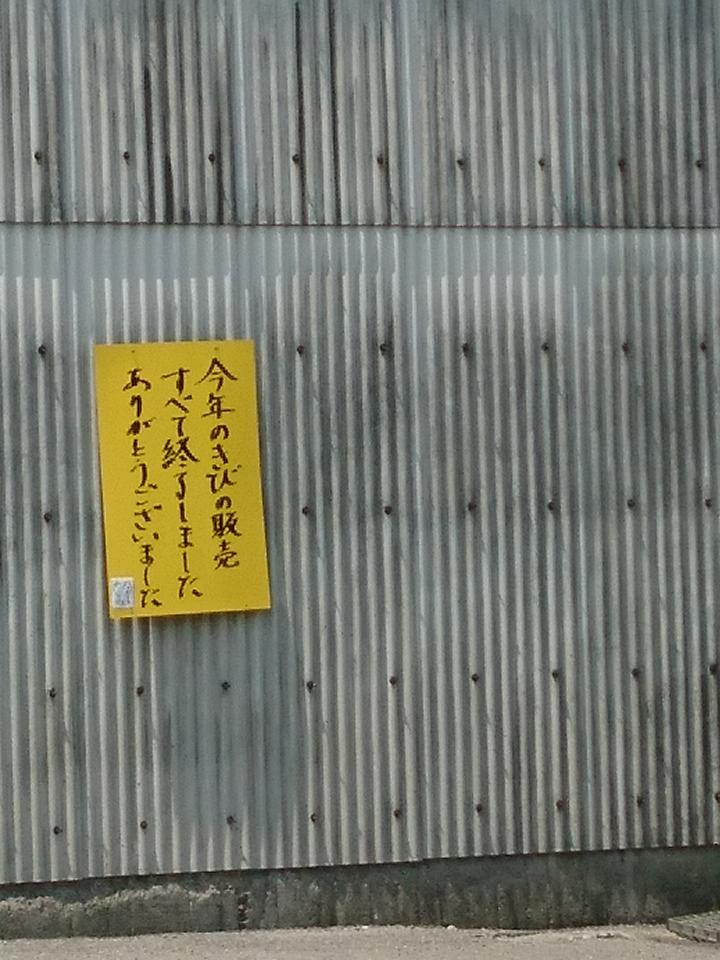 今年のきびの販売
すべて終了しました
ありがとうございました